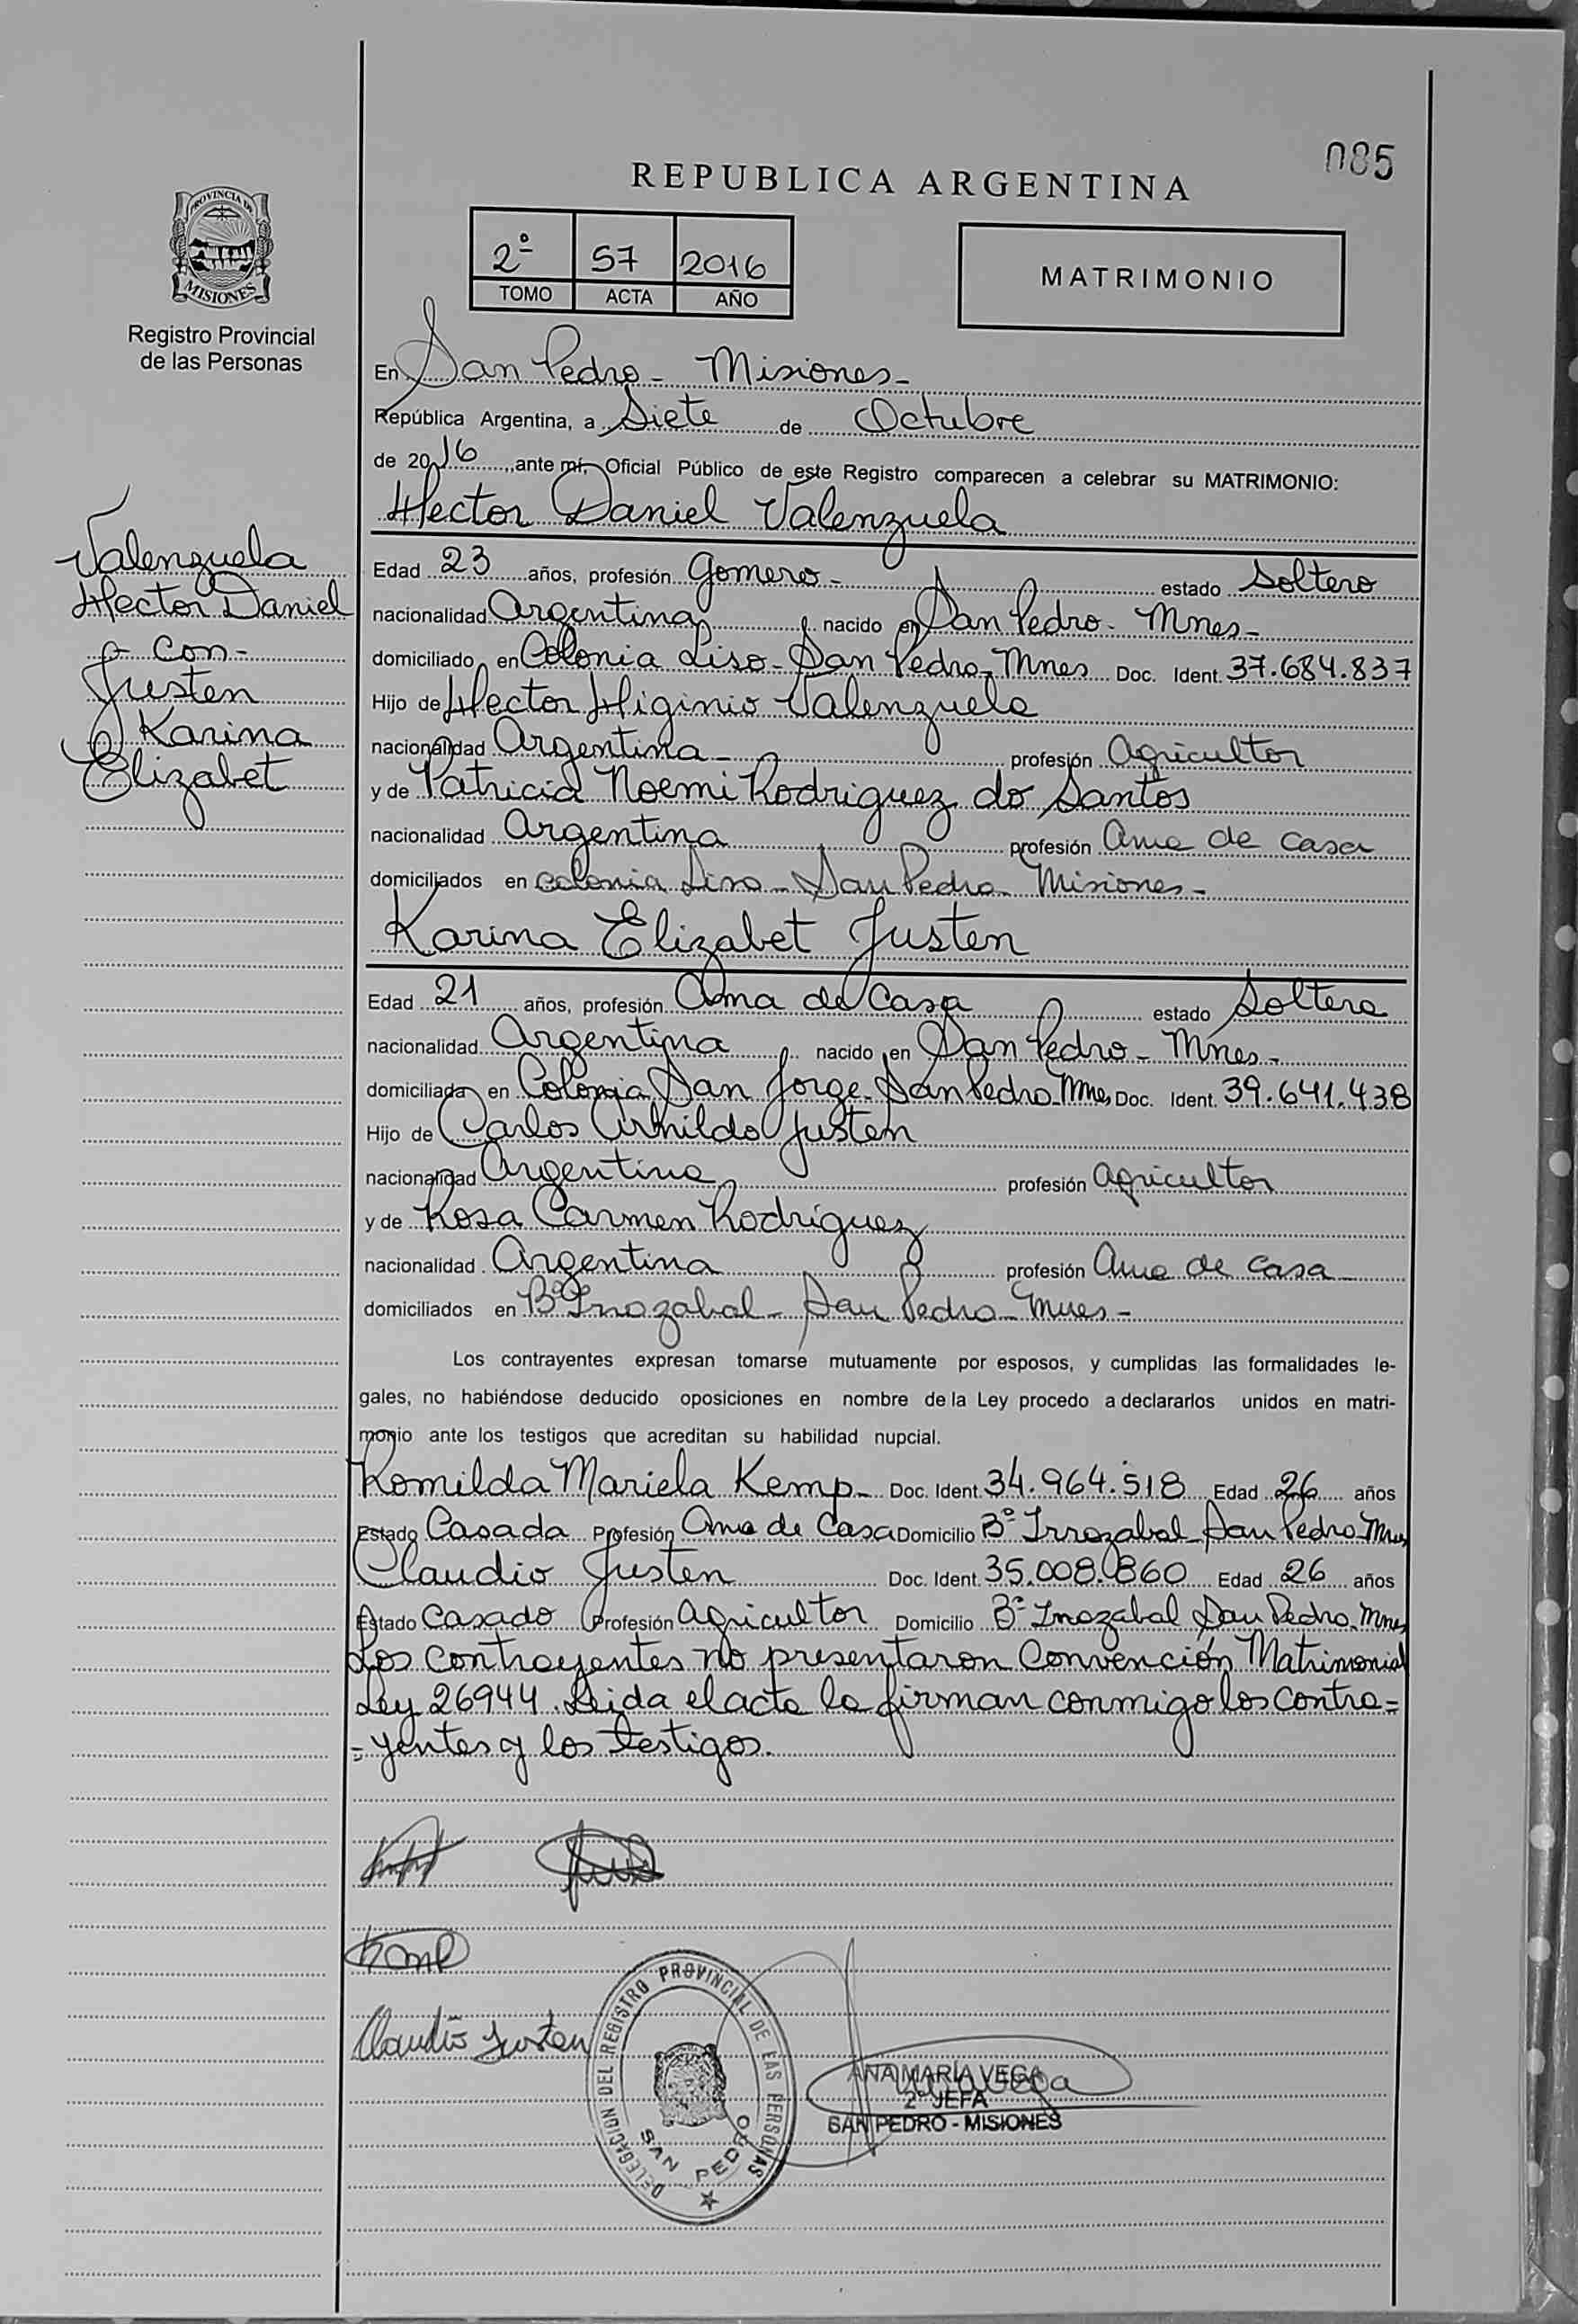 085
REPUBLICA ARGENTINA
PROVINCIA DE
MISIONES
Registro Provincial
de las Personas
2º 57 2016
TOMO ACTA AÑO
MATRIMONIO
En San Pedro - Misiones -
República Argentina, a Siete de Octubre
de 2016, ante mí, Oficial Público de este Registro comparecen a celebrar su MATRIMONIO:
Hector Daniel Valenzuela
Valenzuela
Hector Daniel
- Con -
Justen
Karina
Elizabet
Edad 23 años, profesión Gomero - estado Soltero
nacionalidad Argentina nacido en San Pedro - Mnes -
domiciliado en Colonia Liso - San Pedro - Mnes Doc. Ident. 37.684.837
Hijo de Hector Higinio Valenzuela
nacionalidad Argentina - profesión Agricultor
y de Patricia Noemi Rodriguez do Santos
nacionalidad Argentina profesión Ama de casa
domiciliados en Colonia Liso - San Pedro - Misiones -
Karina Elizabet Justen
Edad 21 años, profesión Ama de Casa estado Soltera
nacionalidad Argentina nacido en San Pedro - Mnes -
domiciliada en Colonia San Jorge - San Pedro - Mnes Doc. Ident. 39.641.438
Hijo de Carlos Arnildo Justen
nacionalidad Argentina profesión Agricultor
y de Rosa Carmen Rodriguez
nacionalidad Argentina profesión Ama de casa
domiciliados en Bº Irrazabal - San Pedro - Mnes -
Los contrayentes expresan tomarse mutuamente por esposos, y cumplidas las formalidades le-
gales, no habiéndose deducido oposiciones en nombre de la Ley procedo a declararlos unidos en matri-
monio ante los testigos que acreditan su habilidad nupcial.
Romilda Mariela Kemp - Doc. Ident. 34.964.518 Edad 26 años
Estado Casada Profesión Ama de Casa Domicilio Bº Irrozabal - San Pedro - Mnes
Claudio Justen Doc. Ident. 35.008.860 Edad 26 años
Estado Casado Profesión Agricultor Domicilio Bº Irrozabal San Pedro - Mnes
Los contrayentes no presentaron Convención Matrimonial
Ley 26944. Leida el acta la firman conmigo los contra=
=yentes y los testigos.
Claudio Justen
DELEGACION DEL REGISTRO PROVINCIAL DE LAS PERSONAS
SAN PEDRO
ANA MARÍA VEGA
2º JEFA
SAN PEDRO - MISIONES